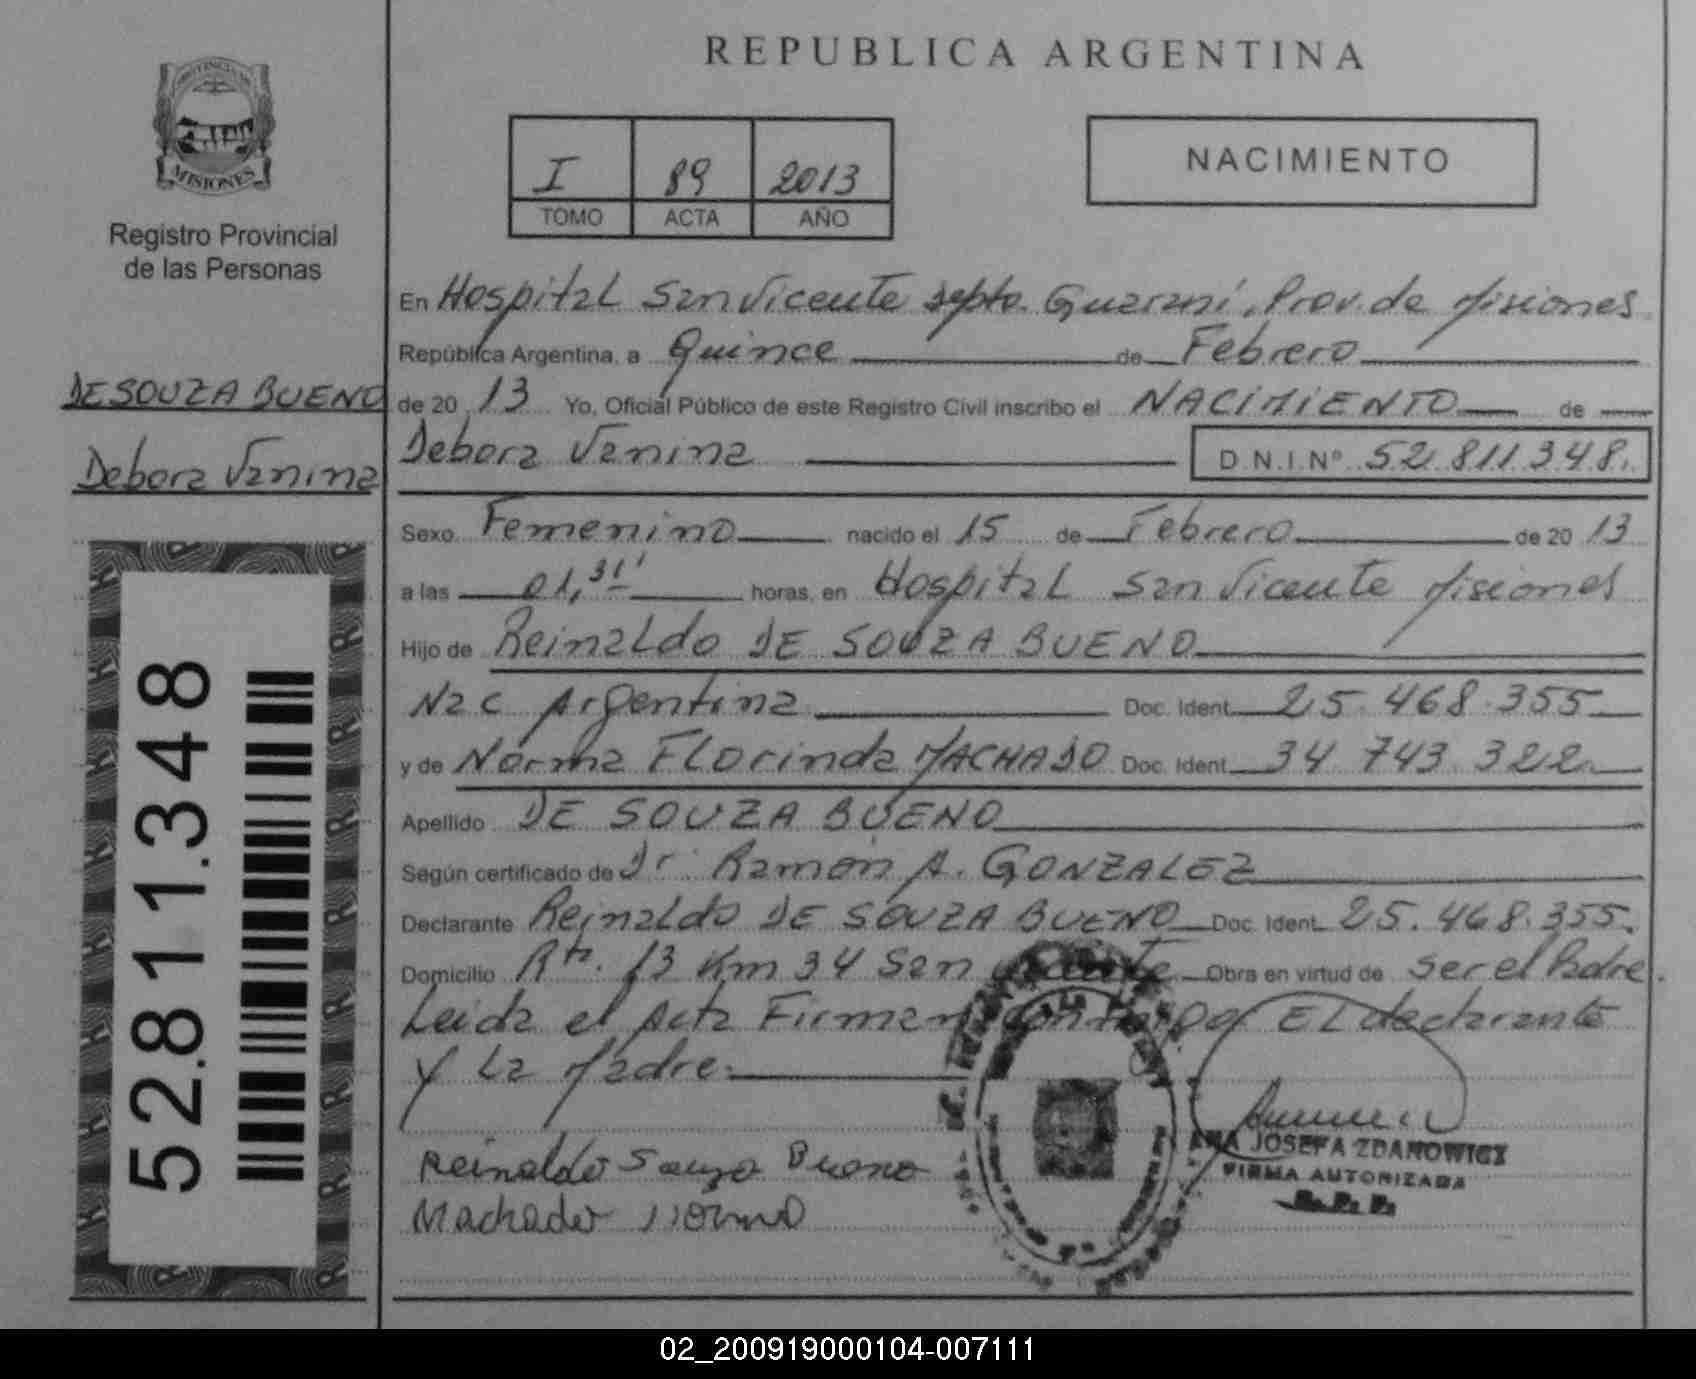 PROVINCIA DE
MISIONES
Registro Provincial
de las Personas
DE SOUZA BUENO
Debora Vanina
52.811.348
REPUBLICA ARGENTINA
I 89 2013
TOMO ACTA AÑO
NACIMIENTO
En Hospital San Vicente Depto. Guarani, Prov. de Misiones
República Argentina, a Quince de Febrero
de 20 13 Yo, Oficial Público de este Registro Civil inscribo el NACIMIENTO de
Debora Vanina D.N.I.Nº 52.811.348.
Sexo Femenino nacido el 15 de Febrero de 20 13
a las 01,31' horas, en Hospital San Vicente Misiones
Hijo de Reinaldo DE SOUZA BUENO
Nac Argentina Doc. Ident. 25.468.355
y de Norma Florinda MACHADO Doc. Ident. 34 743 322
Apellido DE SOUZA BUENO
Según certificado de Dr. Ramón A. GONZALEZ
Declarante Reinaldo DE SOUZA BUENO Doc. Ident. 25.468.355.
Domicilio Rta. 13 Km 34 San Vicente Obra en virtud de ser el Padre.
Leida el Acta Firman conmigo El declarante
y La Madre.
Reinaldo Souza Bueno
Machado Norma
ANA JOSEFA ZDANOWICZ
FIRMA AUTORIZADA
R.P.P.
02_200919000104-007111